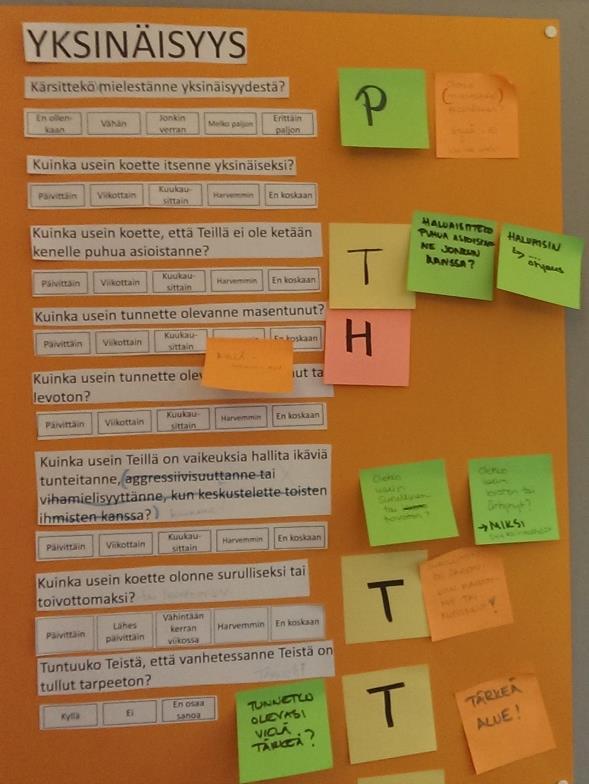 YKSINÄISYYS
Kärsittekö mielestänne yksinäisyydestä?
En ollen-
kaan
Vähän
Jonkin
verran
Melko paljon
Erittäin
paljon
P
Kuinka usein koette itsenne yksinäiseksi?
Päivittäin
Viikottain
Kuukau-
sittain
Harvemmin
En koskaan
Kuinka usein koette, että Teillä ei ole ketään
kenelle puhua asioistanne?
Päivittäin
Viikottain
Kuukau-
sittain
Harvemmin
En koskaan
T
HALUAISITTEKO
PUHUA ASIOISTAN-
NE JONKUN
KANSSA?
HALUAISIN
↳ ... ohjaus
Kuinka usein tunnette olevanne masentunut?
Päivittäin
Viikottain
Kuukau-
sittain
En koskaan
H
Kuinka usein tunnette olev
ut ta
levoton?
Päivittäin
Viikottain
Kuukau-
sittain
Harvemmin
En koskaan
Kuinka usein Teillä on vaikeuksia hallita ikäviä
tunteitanne, (aggressiivisuuttanne tai
vihamielisyyttänne, kun keskustelette toisten
ihmisten kanssa?)
Päivittäin
Viikottain
Kuukau-
sittain
Harvemmin
En koskaan
Oletko
usein
surullinen
tai
toivoton?
Oletko
usein
levoton tai
ärtynyt?
→ MIKSI
Kuinka usein koette olonne surulliseksi tai
toivottomaksi?
Päivittäin
Lähes
päivittäin
Vähintään
kerran
viikossa
Harvemmin
En koskaan
T
Tuntuuko Teistä, että vanhetessanne Teistä on
tullut tarpeeton?
Kyllä
Ei
En osaa
sanoa
TUNNETKO
OLEVASI
VIELÄ
TÄRKEÄ?
T
TÄRKEÄ
ALUE!